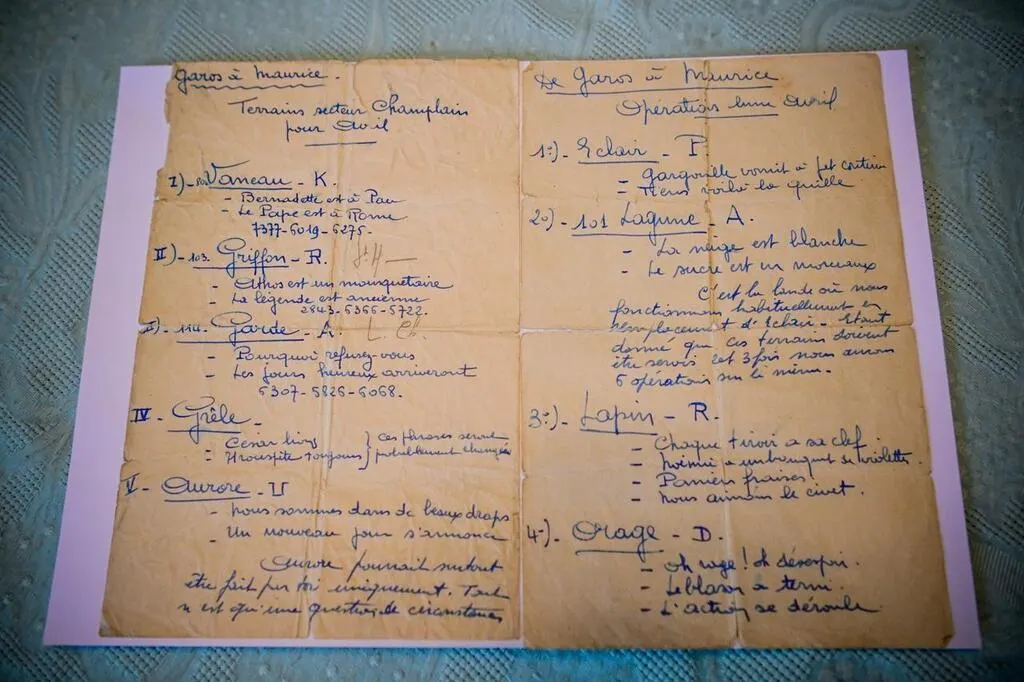 Garos à Maurice.
Terrains secteur Champlain
pour Avril
I)- Vaneau - K.
- Bernadette est à Pau
- Le Pape est à Rome
7377-6019-6275.
II)- 103. Griffon - R.
- Athos est un mousquetaire
- La légende est ancienne
2843-6366-5722.
114- Garde - A. L. Ch.
- Pourquoi refusez-vous
- Les jours heureux arriveront
6307-5826-6068.
IV- Grêle -
- César
- toujours
} ces phrases seront
probablement changées
V- Aurore - U
- Nous sommes dans de beaux draps
- Un nouveau jour s'annonce
Aurore pourrait surtout
être fait par toi uniquement. Tout
n'est qu'une question de circonstances
De Garos à Maurice
Opérations lune Avril
1°)- Eclair - F.
- Gargouille vomit à jet continu
- Tiens voilà la quille
2°)- 101 Lagune - A.
- La neige est blanche
- Le sucre est en morceaux
C'est la lande où nous
fonctionnons habituellement en
remplacement d'Eclair - Etant
donné que ces terrains doivent
être servis 2 et 3 fois nous aurons
6 opérations sur le même.
3°)- Lapin - R.
- Chaque tiroir a sa clef
- Noémie a un bouquet de violettes
- Paniers fraises.
- Nous aimons le civet.
4°)- Orage - D.
- Oh rage ! oh désespoir.
- Le blason a terni.
- L'action se déroule